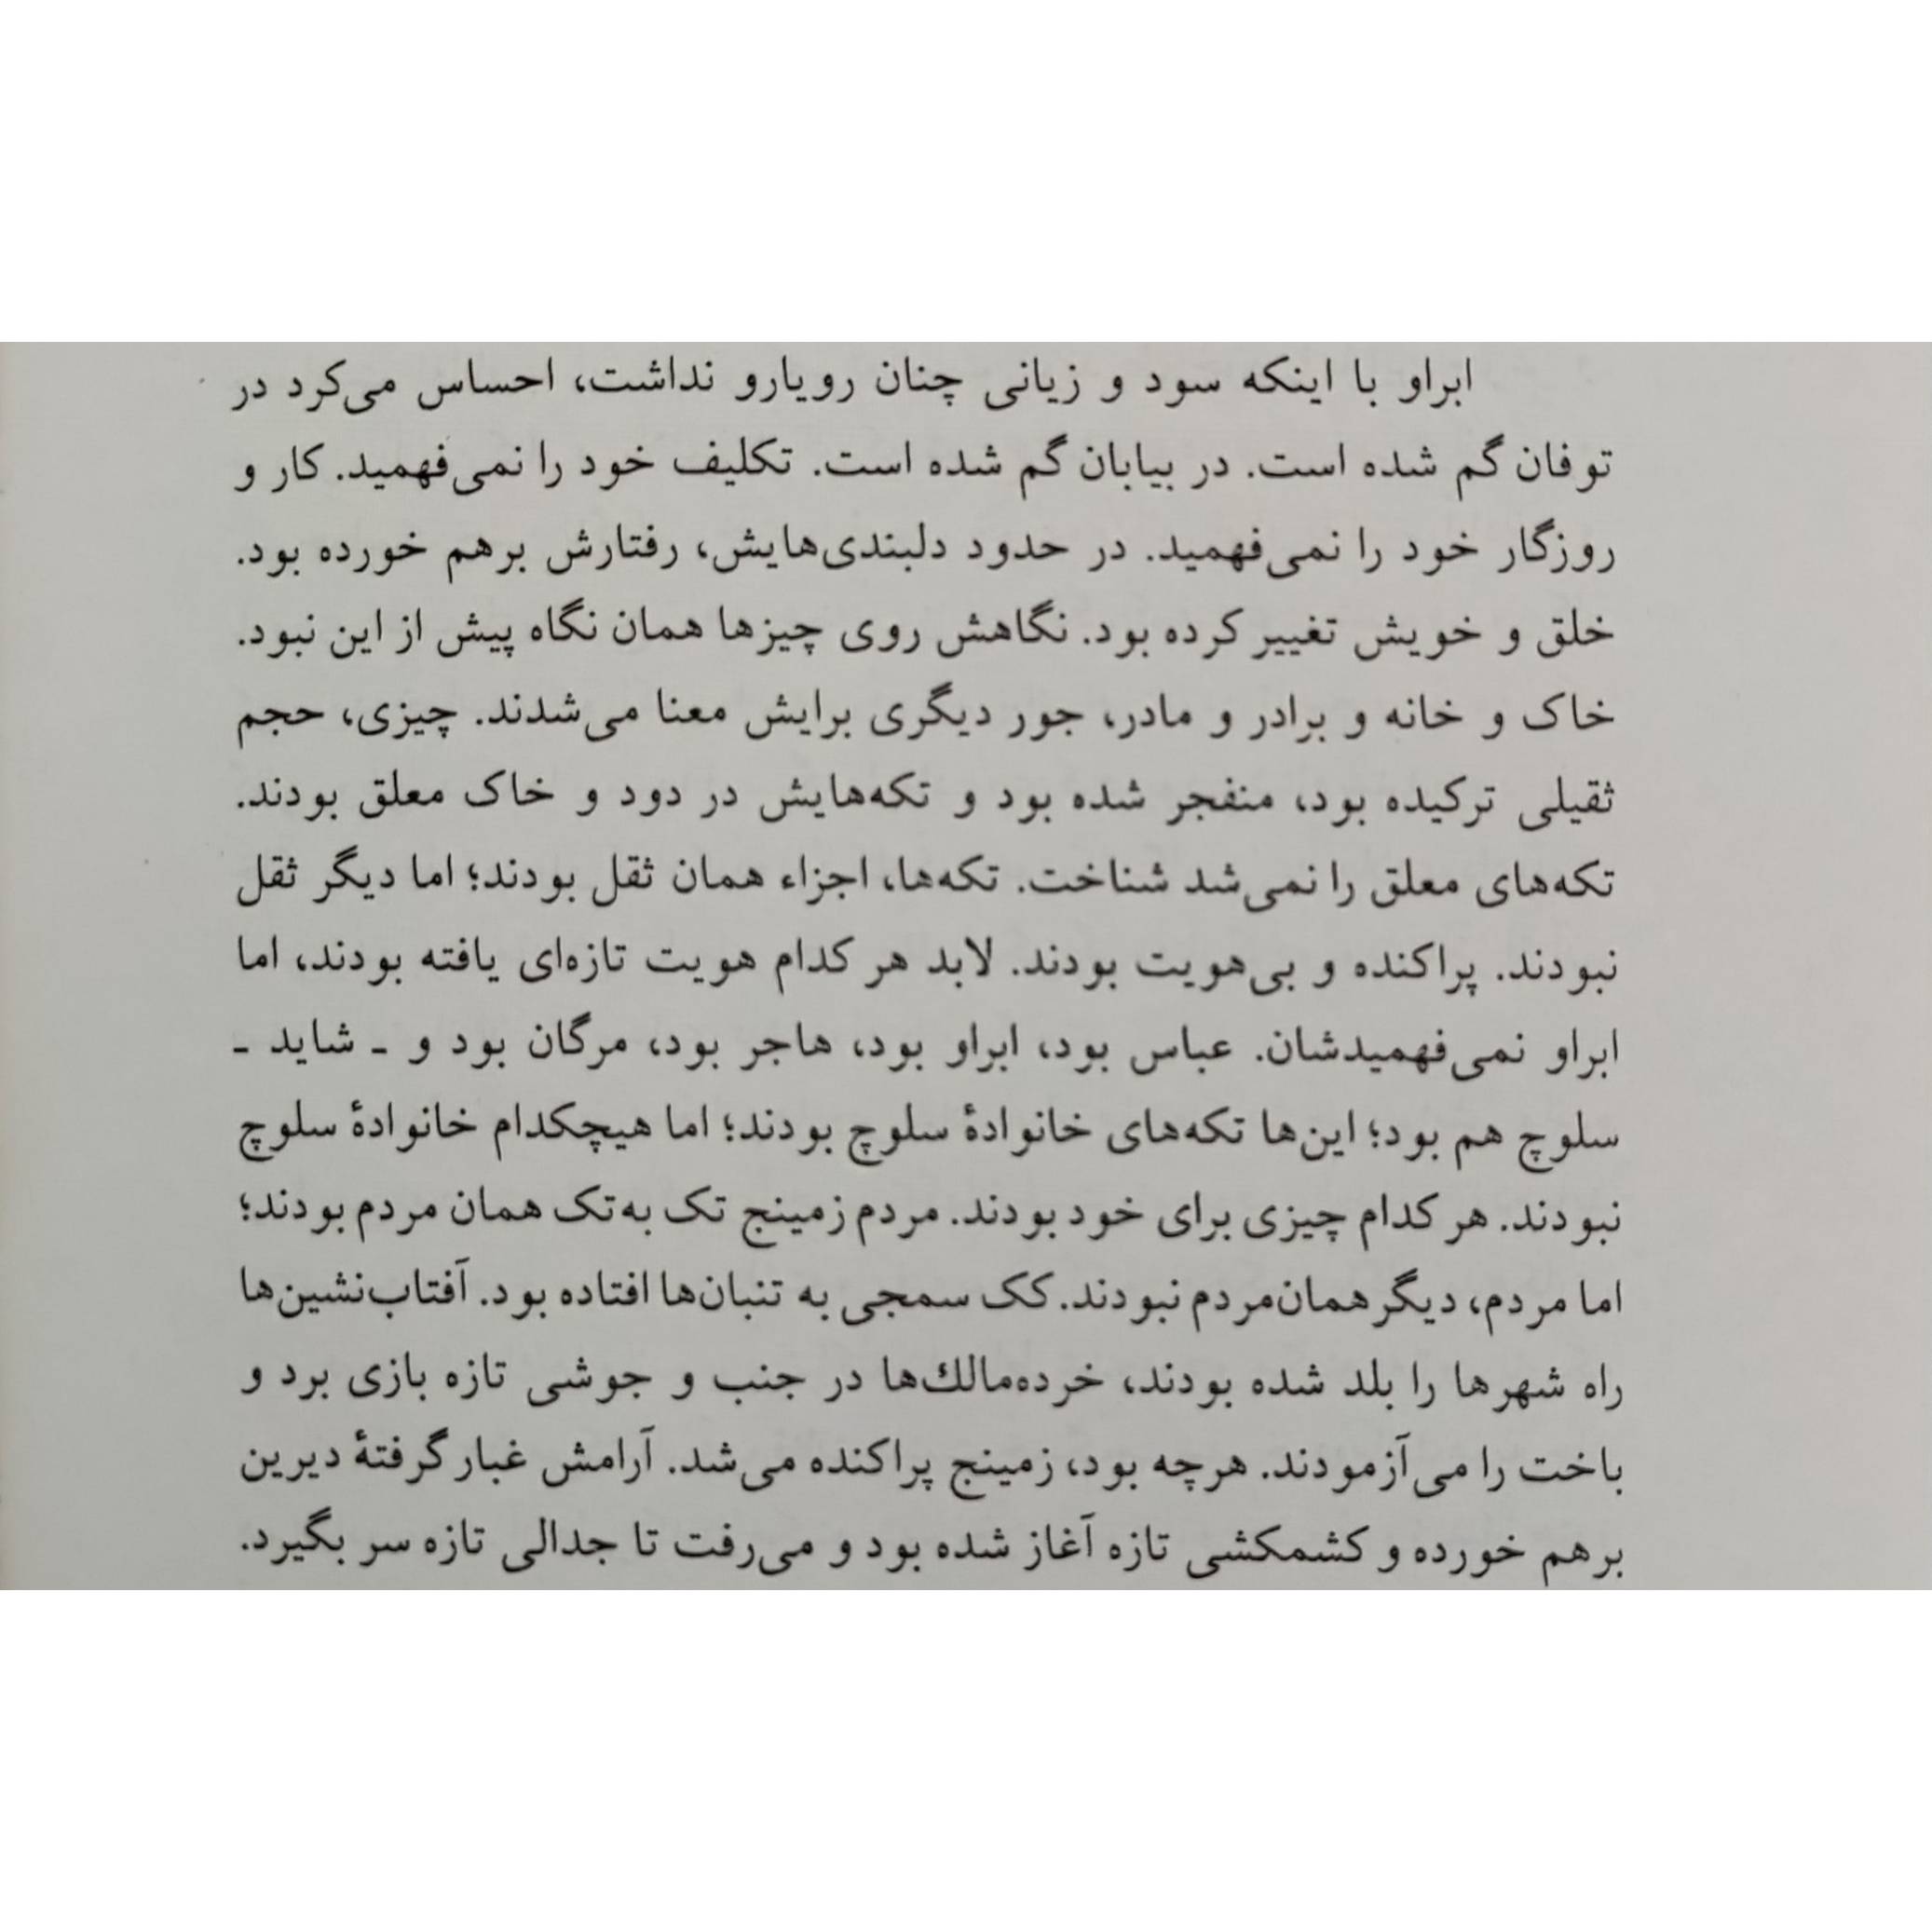 ابراو با اینکه سود و زیانی چنان رویارو نداشت، احساس می‌کرد در
توفان گم شده است. در بیابان گم شده است. تکلیف خود را نمی‌فهمید. کار و
روزگار خود را نمی‌فهمید. در حدود دلبندی‌هایش، رفتارش برهم خورده بود.
خلق و خویش تغییر کرده بود. نگاهش روی چیزها همان نگاه پیش از این نبود.
خاک و خانه و برادر و مادر، جور دیگری برایش معنا می‌شدند. چیزی، حجم
ثقیلی ترکیده بود، منفجر شده بود و تکه‌هایش در دود و خاک معلق بودند.
تکه‌های معلق را نمی‌شد شناخت. تکه‌ها، اجزاء همان ثقل بودند؛ اما دیگر ثقل
نبودند. پراکنده و بی‌هویت بودند. لابد هر کدام هویت تازه‌ای یافته بودند، اما
ابراو نمی‌فهمیدشان. عباس بود، ابراو بود، هاجر بود، مرگان بود و ـ شاید ـ
سلوچ هم بود؛ این‌ها تکه‌های خانوادهٔ سلوچ بودند؛ اما هیچکدام خانوادهٔ سلوچ
نبودند. هر کدام چیزی برای خود بودند. مردم زمینج تک به‌تک همان مردم بودند؛
اما مردم، دیگر همان‌مردم نبودند. کک سمجی به تنبان‌ها افتاده بود. آفتاب‌نشین‌ها
راه شهرها را بلد شده بودند، خرده‌مالك‌ها در جنب و جوشی تازه بازی برد و
باخت را می‌آزمودند. هرچه بود، زمینج پراکنده می‌شد. آرامش غبار گرفتهٔ دیرین
برهم خورده و کشمکشی تازه آغاز شده بود و می‌رفت تا جدالی تازه سر بگیرد.